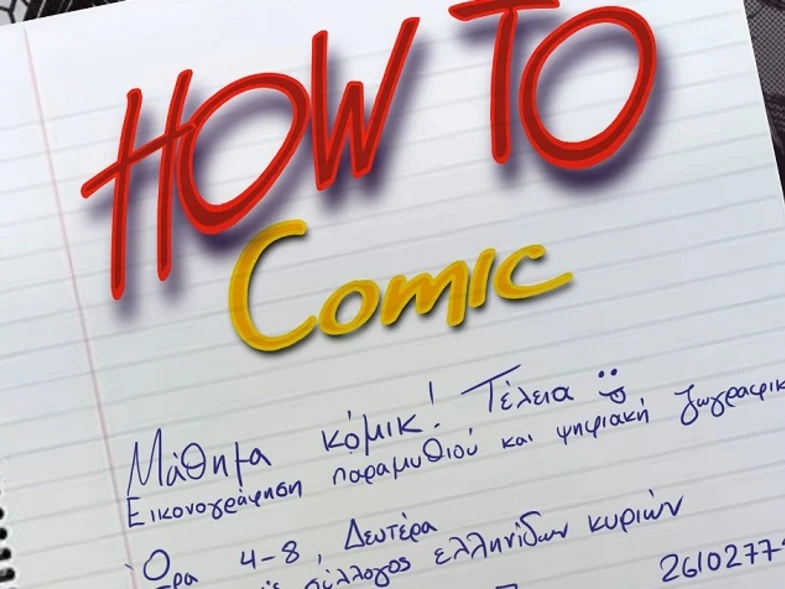 HOW TO
Comic
Μάθημα κόμικ! Τέλεια
Εικονογράφηση παραμυθιού και ψηφιακή
Ώρα 4-8, Δευτέρα
σύλλογος ελληνίδων κυριών